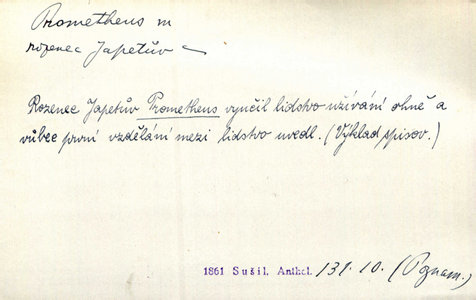 Prometheus m
rozenec Japetův
Rozenec Japetův Prometheus vyučil lidstvo užívání ohně a
vůbec první vzdělání mezi lidstvo uvedl. (Výklad spisov.)
1861 Sušil. Anthol. 131. 10. (Poznam.)